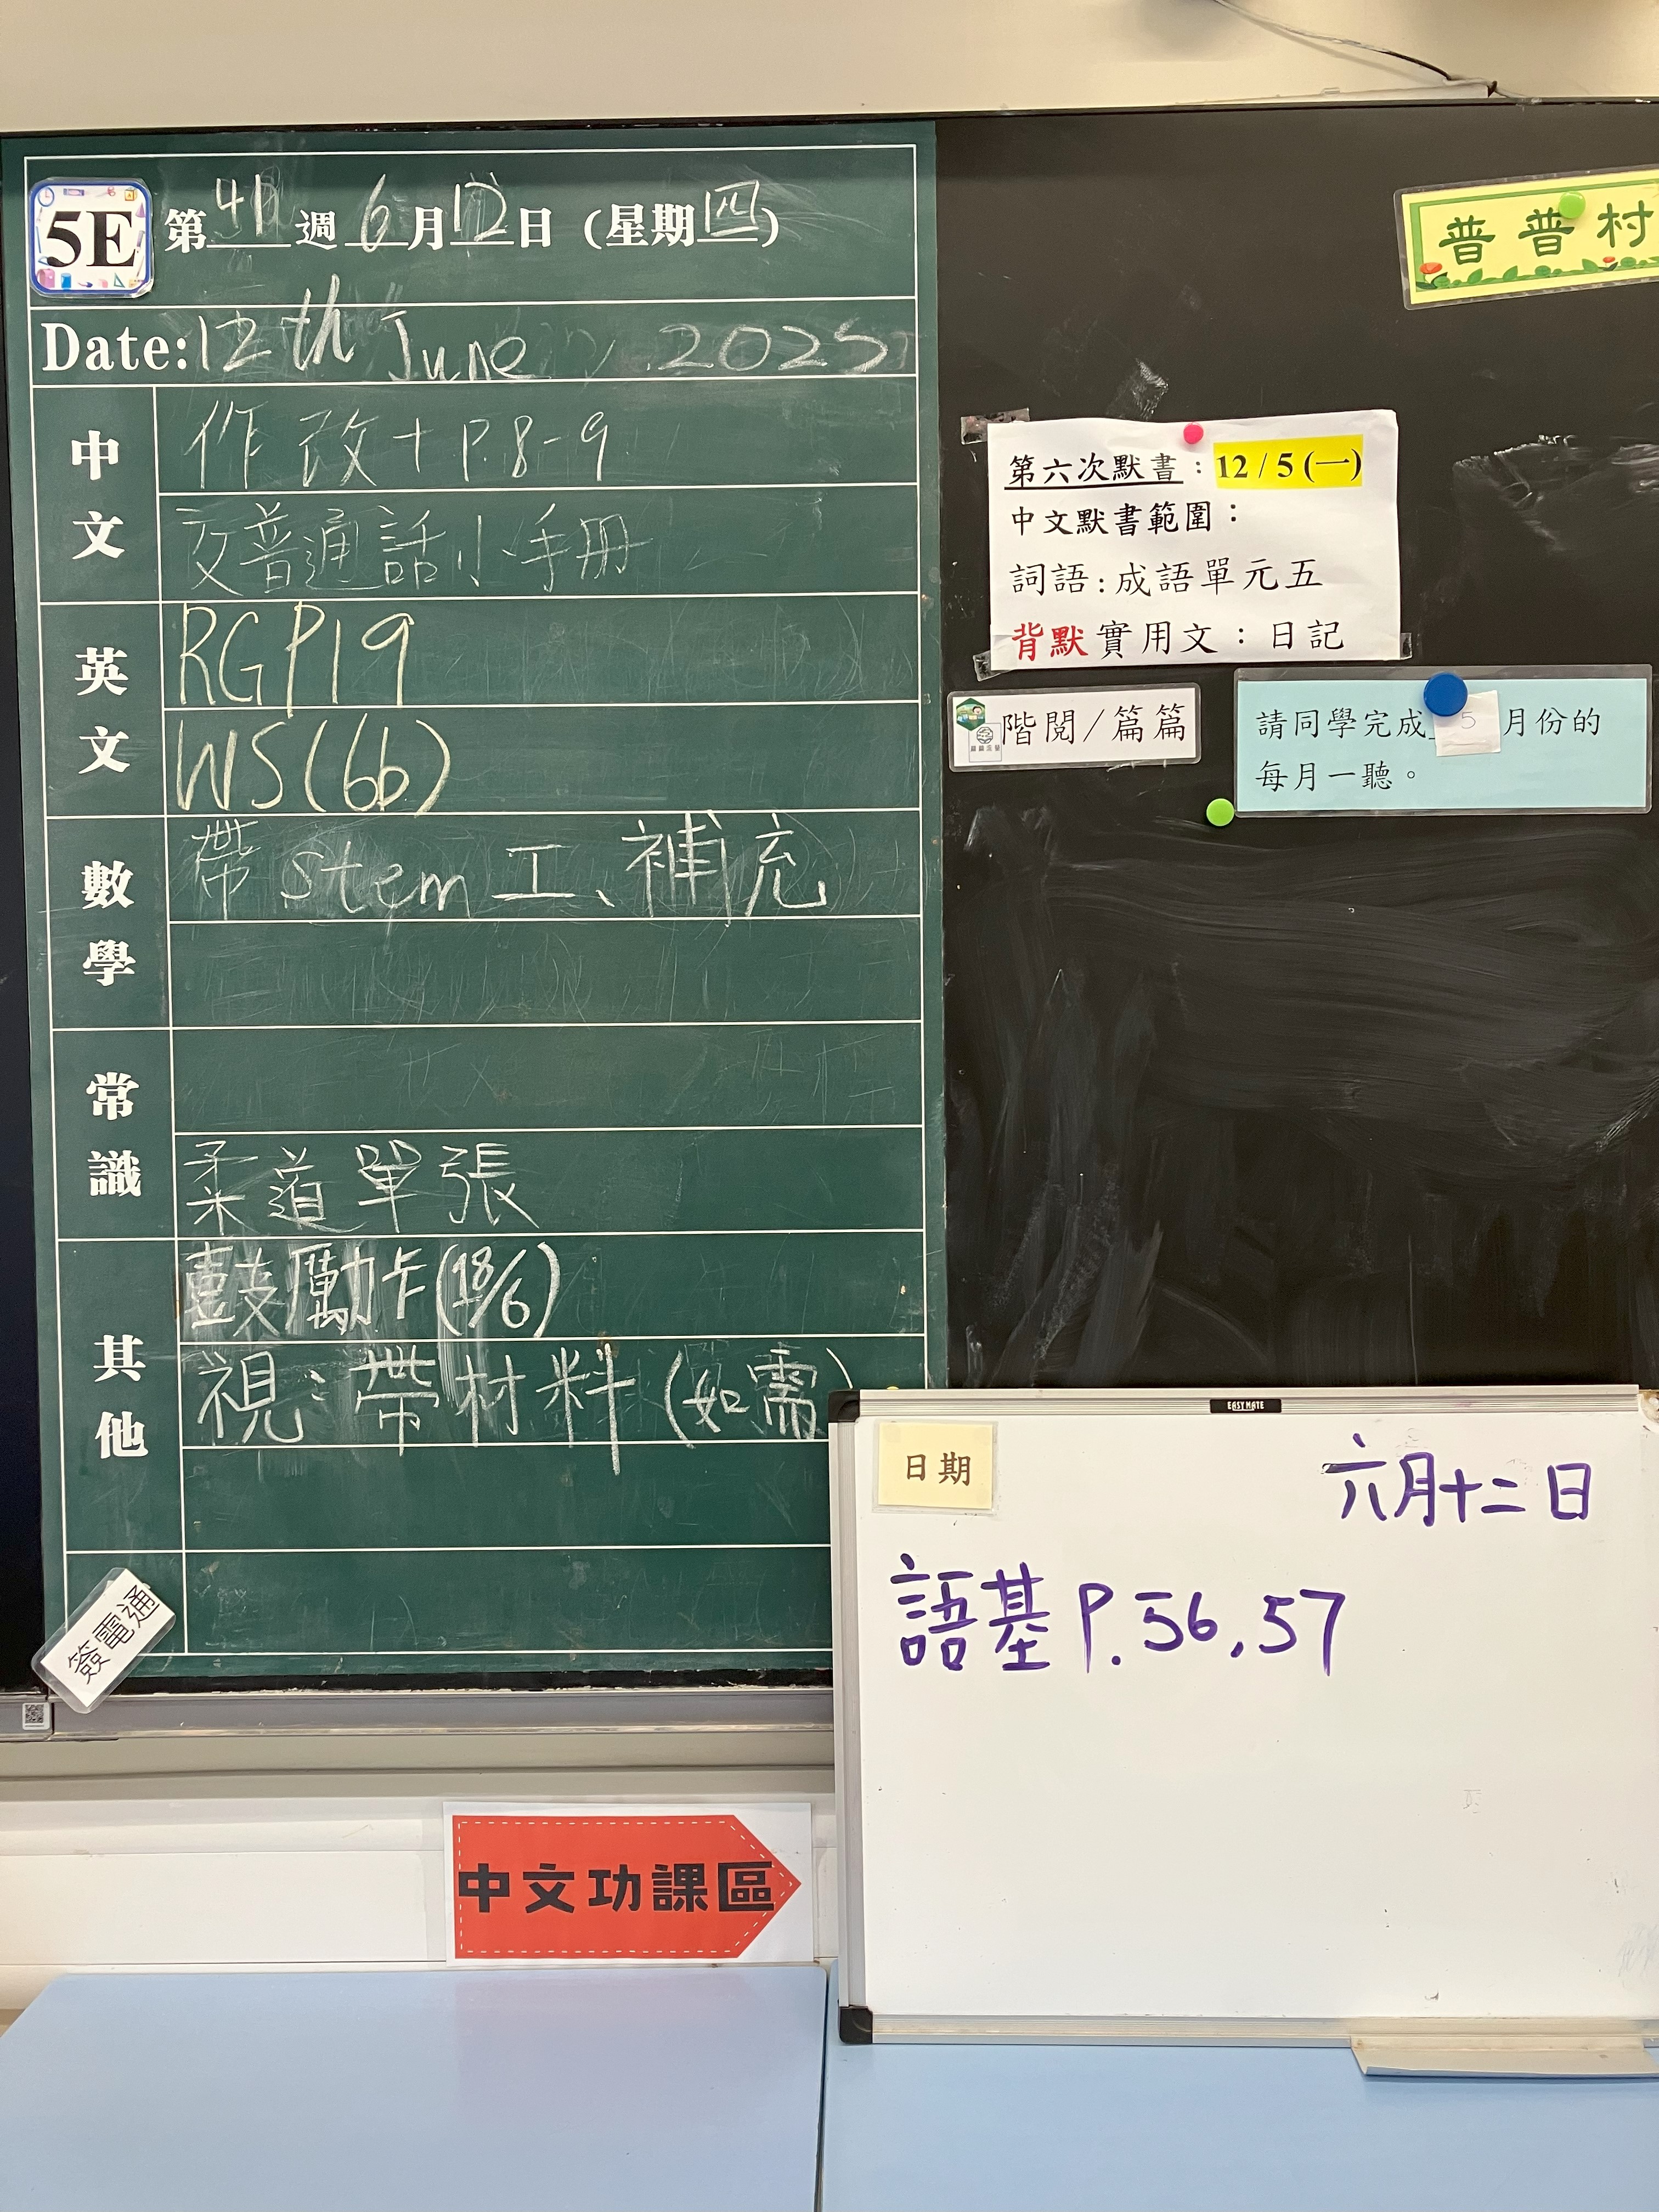 5E
第41週 6月12日 (星期四)
Date: 12th June, 2025
中文
作改+P.8-9
交普通話小手冊
英文
RGP19
WS(6b)
數學
帶stem工、補充
常識
柔道單張
其他
鼓勵卡(18/6)
視：帶材料(如需)
簽電通
普普村
第六次默書：12/5(一)
中文默書範圍：
詞語：成語單元五
背默實用文：日記
階閱/篇篇
請同學完成 5 月份的
每月一聽。
EASYMATE
日期
六月十二日
語基P.56,57
中文功課區